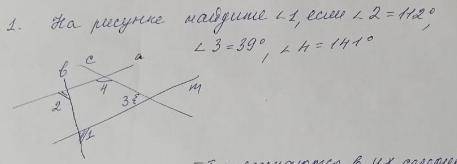 1. На рисунке найдите ∠1, если ∠2 = 112°,
∠3 = 39°, ∠4 = 141°
в с а
2 4 3 m
1